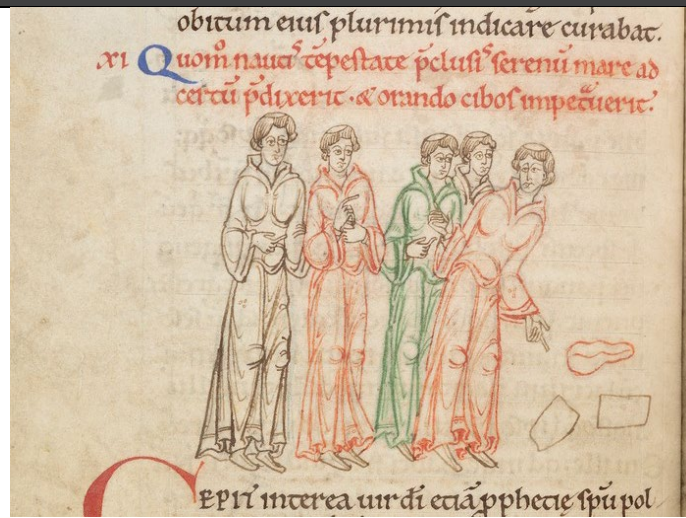 obitum eius plurimis indicare curabat.
XI Quom̄ nauti᷒ tēpestate p̄clusi᷒ serenū mare ad
certū p̄dixerit · & orando cibos impetᷓuerit.
CEPIT interea uir dī etiā ꝓphetię sp̄u pol